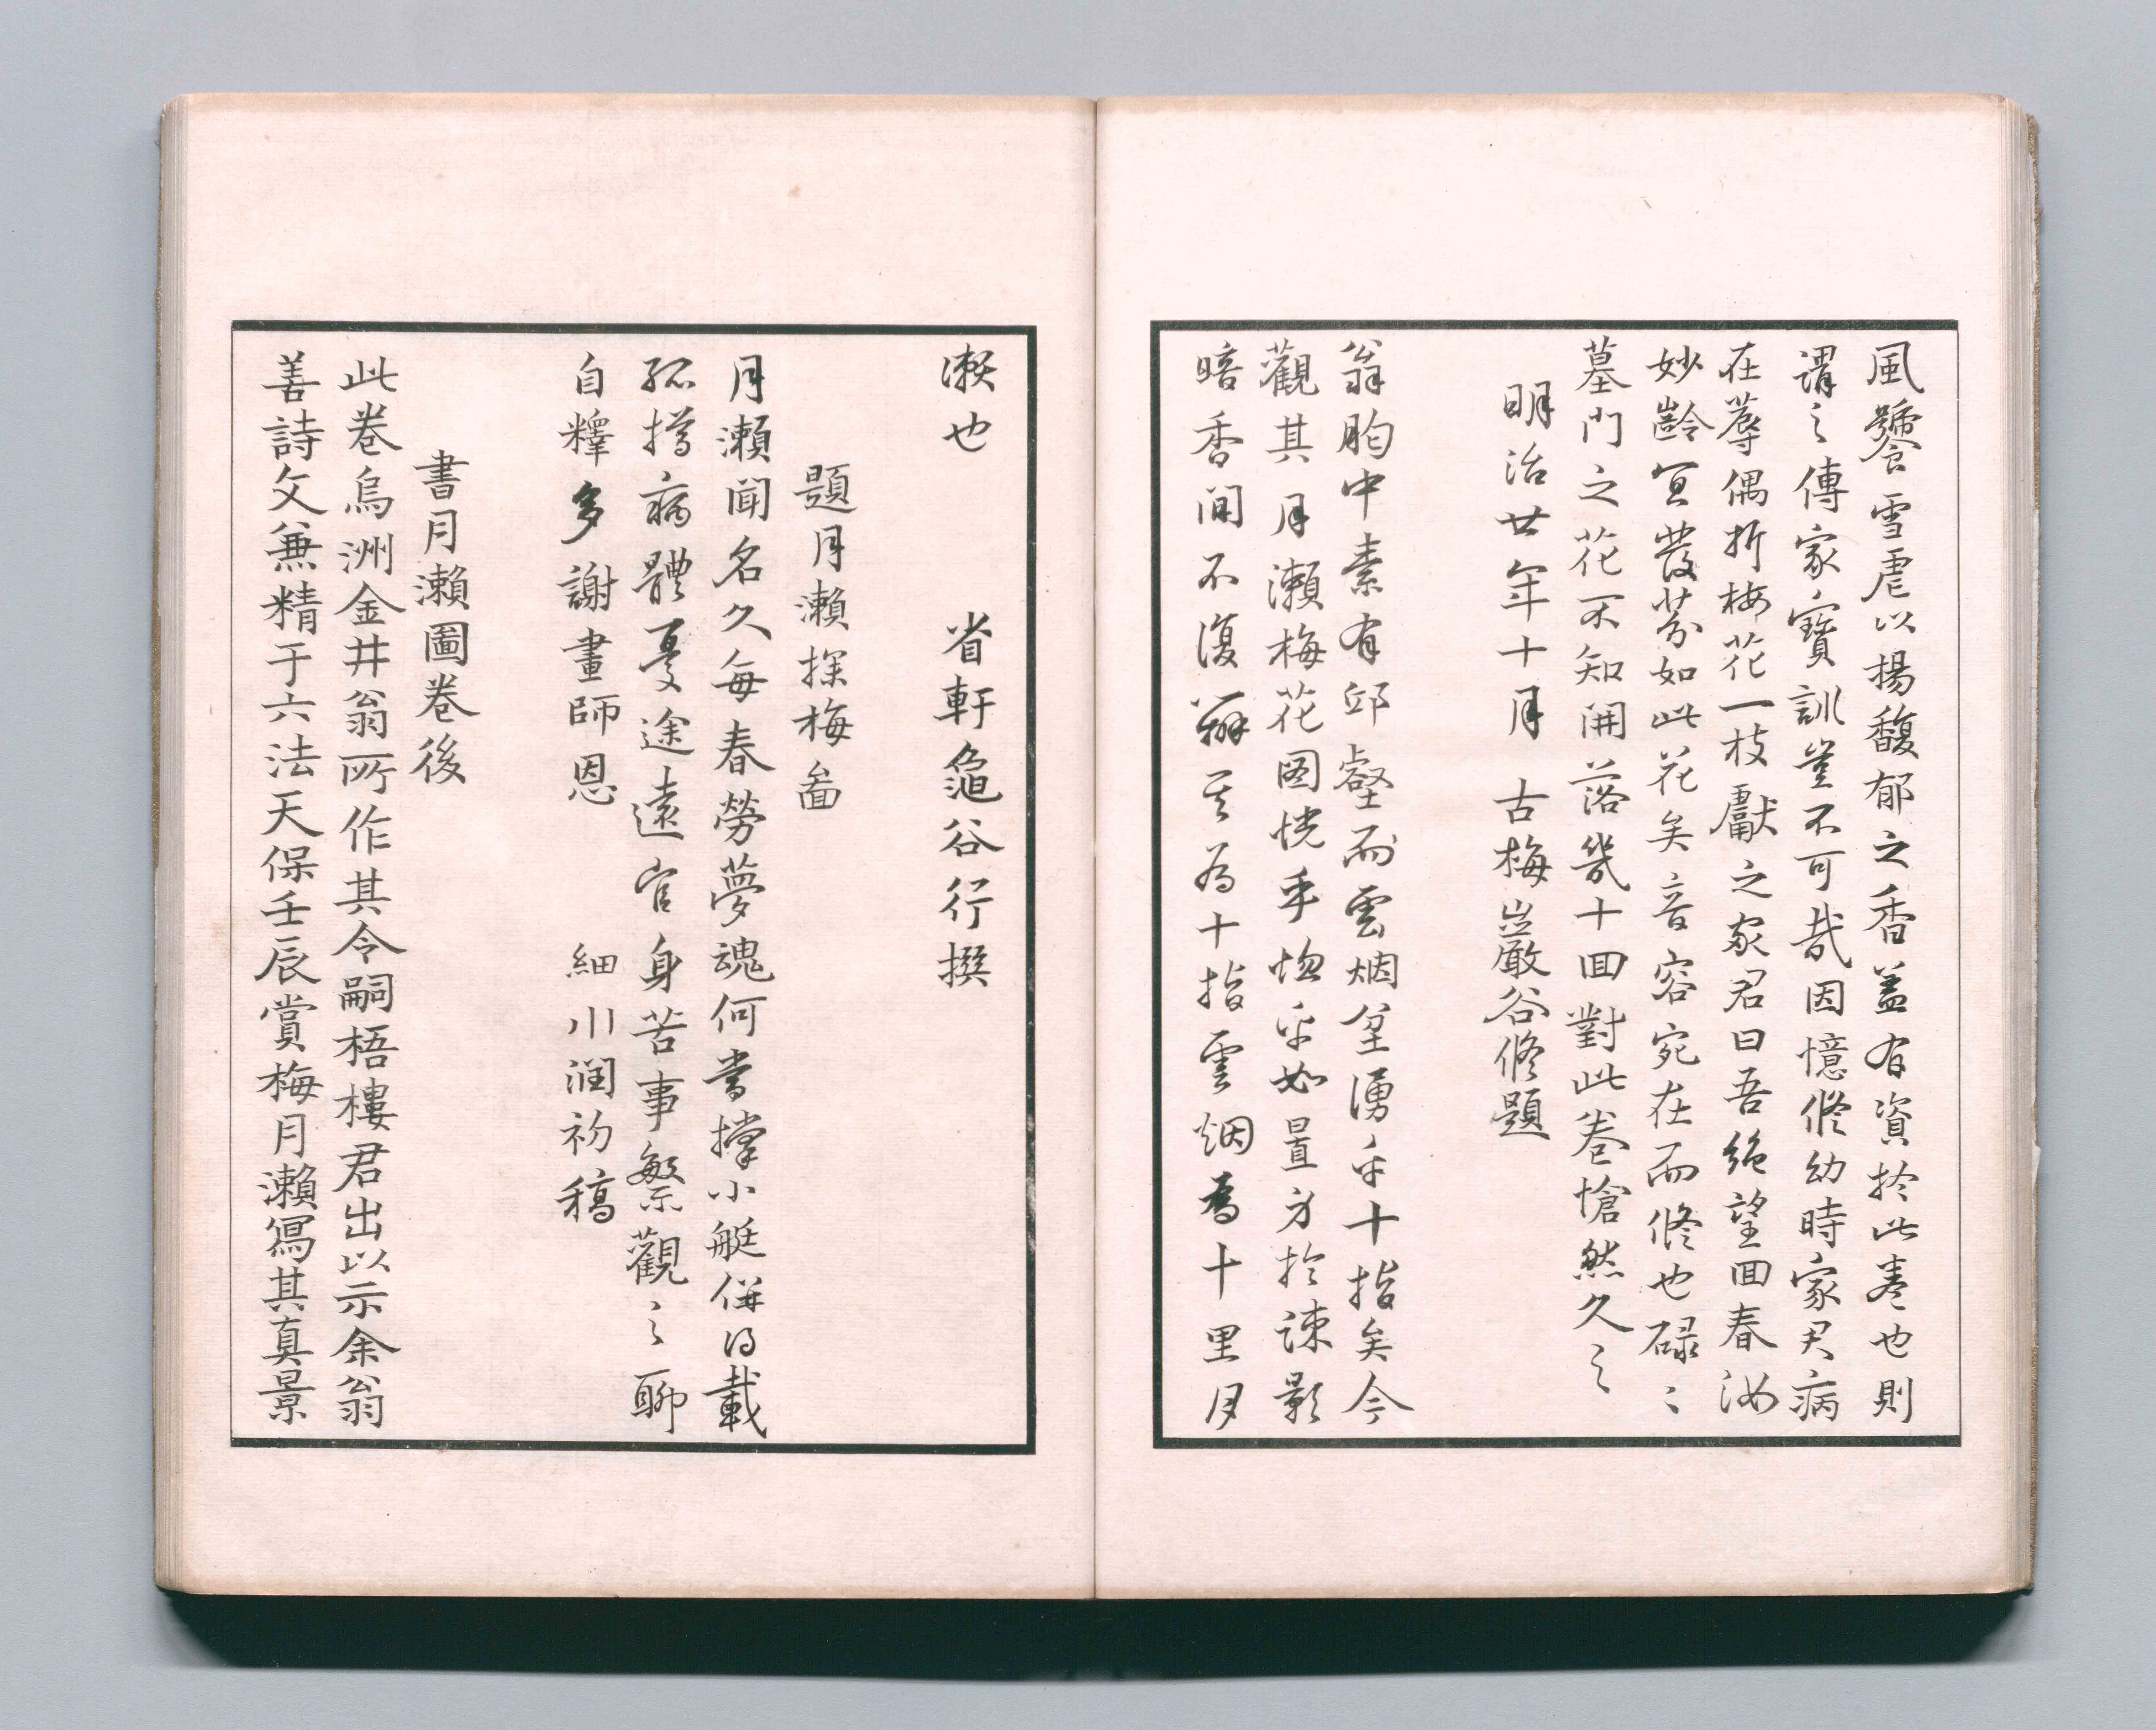 風饕雪虐以揚馥郁之香蓋有資於此卷也則
謂之傳家寶訓豈不可哉因憶脩幼時家君病
在蓐偶折梅花一枝獻之家君曰吾絶望回春汝
妙齡宜發芬如此花矣音容宛在而脩也碌〻
墓門之花不知開落幾十回對此卷愴然久之
明治廿年十月 古梅巌谷脩題
翁胸中素有邱壑而雲烟坌湧乎十指矣今
觀其月瀨梅花图恍乎惚乎如置身於疎影
暗香間不復辨其為十指雲烟為十里月
瀨也 省軒龜谷行撰
題月瀨探梅啚
月瀨聞名久每春勞夢魂何當撐小艇併得載
孤樽病體憂途遠官身苦事繁觀之聊
自釋多謝畫師恩 細川潤初稿
書月瀨圖卷後
此卷烏洲金井翁所作其令嗣梧樓君出以示余翁
善詩文兼精于六法天保壬辰賞梅月瀨寫其真景